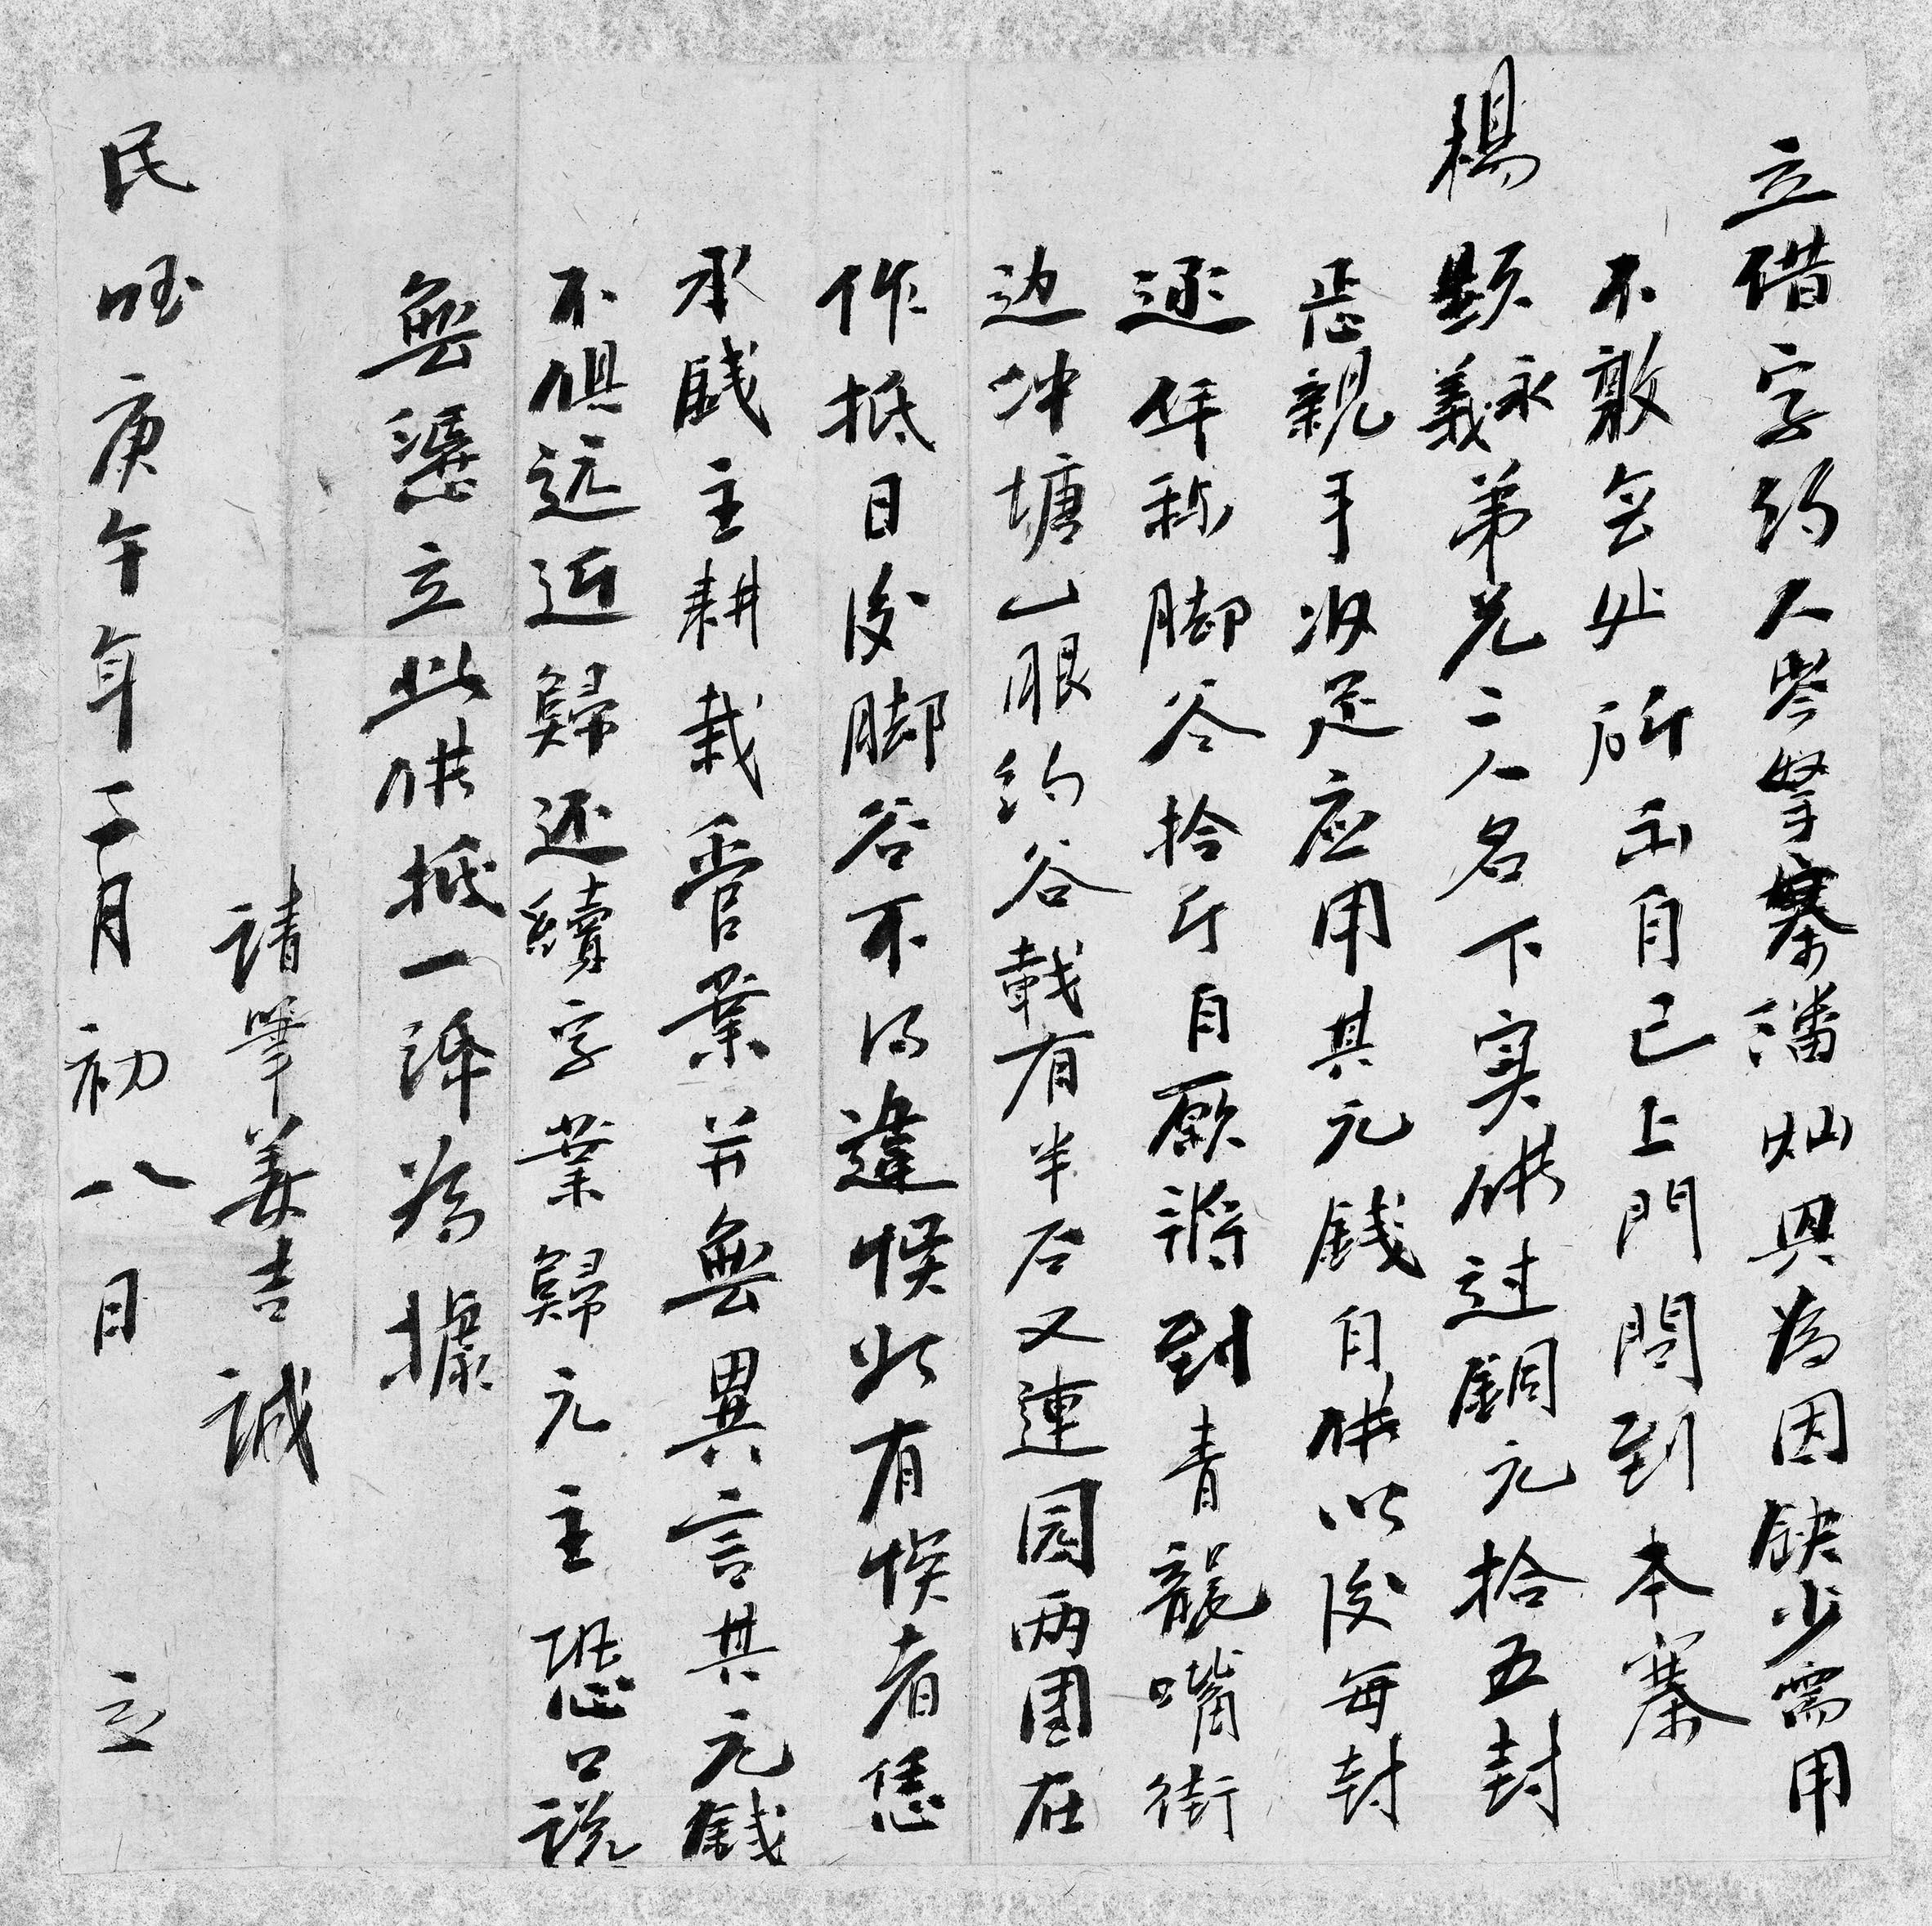 立借字约人岑孥寨潘灿兴為因缺少需用
不敷無处所出自己上門問到本寨
楊顕永義弟兄二人名下实借过銅元拾五封
恁親手收足应用其元錢自借以後每封
逐年称脚谷拾斤自願將到青龍嘴街
边冲塘山眼約谷戟有半石又連园两团在
作抵日後脚谷不得違悮若有悮者恁
承錢主耕栽管業並無異言其元錢
不俱远近歸还續字業歸元主恐口説
無憑立此借抵一紙為據
請筆姜吉誠
民国庚午年二月初八日 立